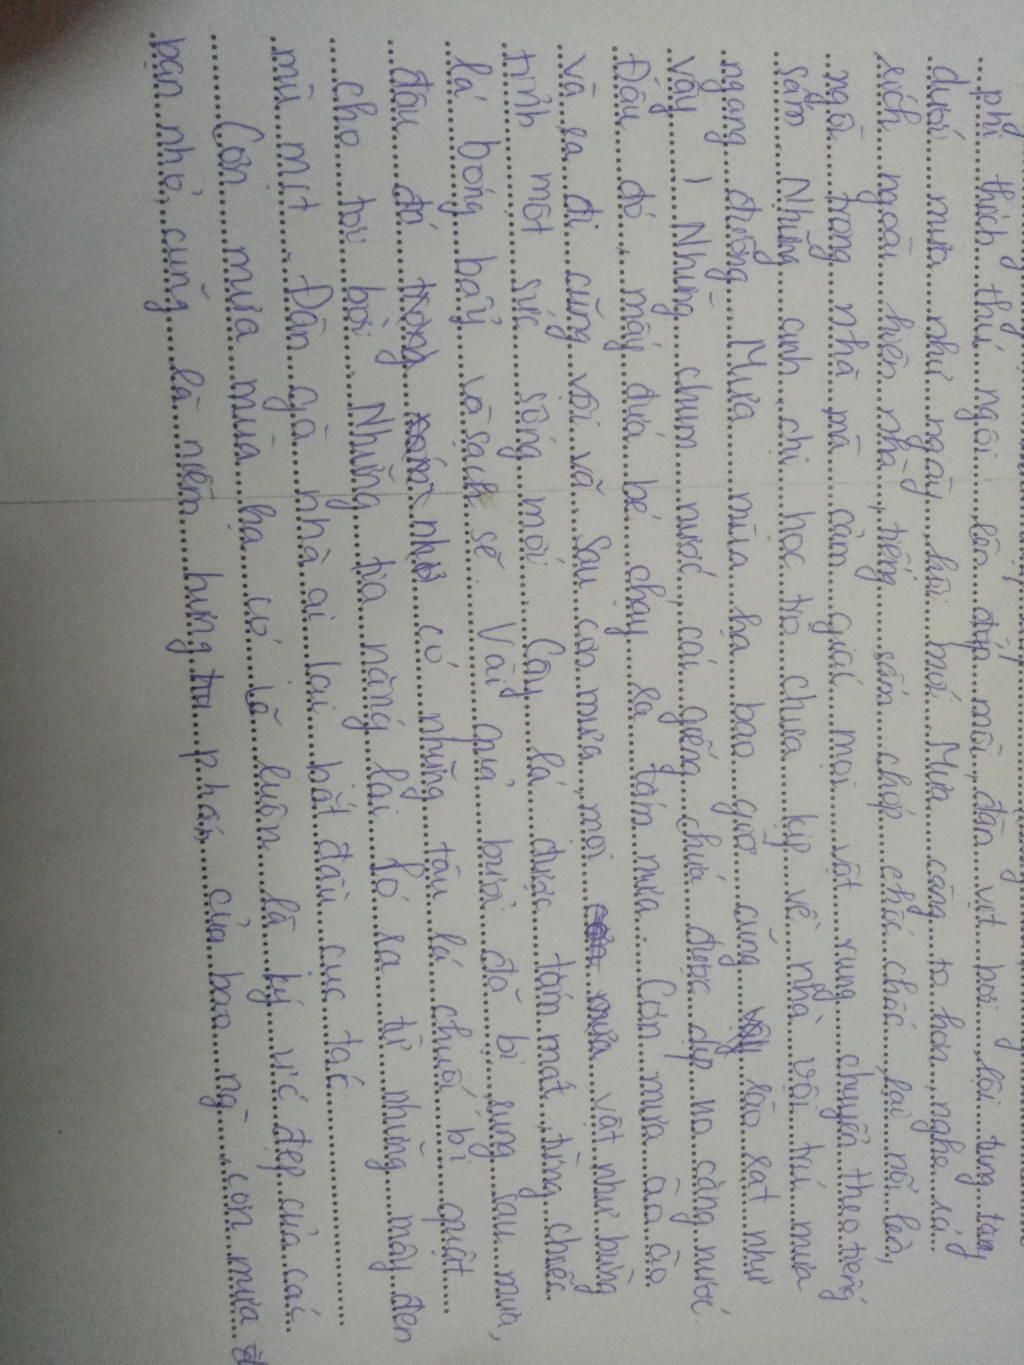 phi thích thú ngồi lên đớp mồi, đàn vịt bơi lội tung tăng
dưới mưa như ngày hội mới. Mưa càng to hơn, nghe lá
rích ngoài hiên nhà, tiếng sấm chớp chốc chốc lại nổi lên,
ngồi trong nhà mà cảm giác mọi vật rung chuyển theo tiếng
sấm Những anh, chị học trò chưa kịp về nhà vội trú mưa
ngang đường. Mưa mùa hạ bao giờ cũng rào rạt như
vậy ! Những chum nước, cái giếng chứa được dịp no căng nước.
Đâu đó, mấy đứa bé chạy ra tắm mưa. Cơn mưa ào ào
và ra đi cũng vội vã. Sau cơn mưa, mọi vật như bừng
tỉnh một sức sống mới. Cây lá được tắm mát, từng chiếc
lá bóng bẩy và sạch sẽ. Vài quả bưởi đã bị rụng sau mưa,
đâu đó trong có những tàu lá chuối bị quật
cho tơi bời. Những tia nắng lại ló ra từ những mây đen
mù mịt. Đàn gà nhà ai lại bắt đầu cục tác
Cơn mưa mùa hạ có lẽ luôn là ký ức đẹp của các
bạn nhỏ, cũng là niềm hưng thu phấn của bao ng, cơn mưa